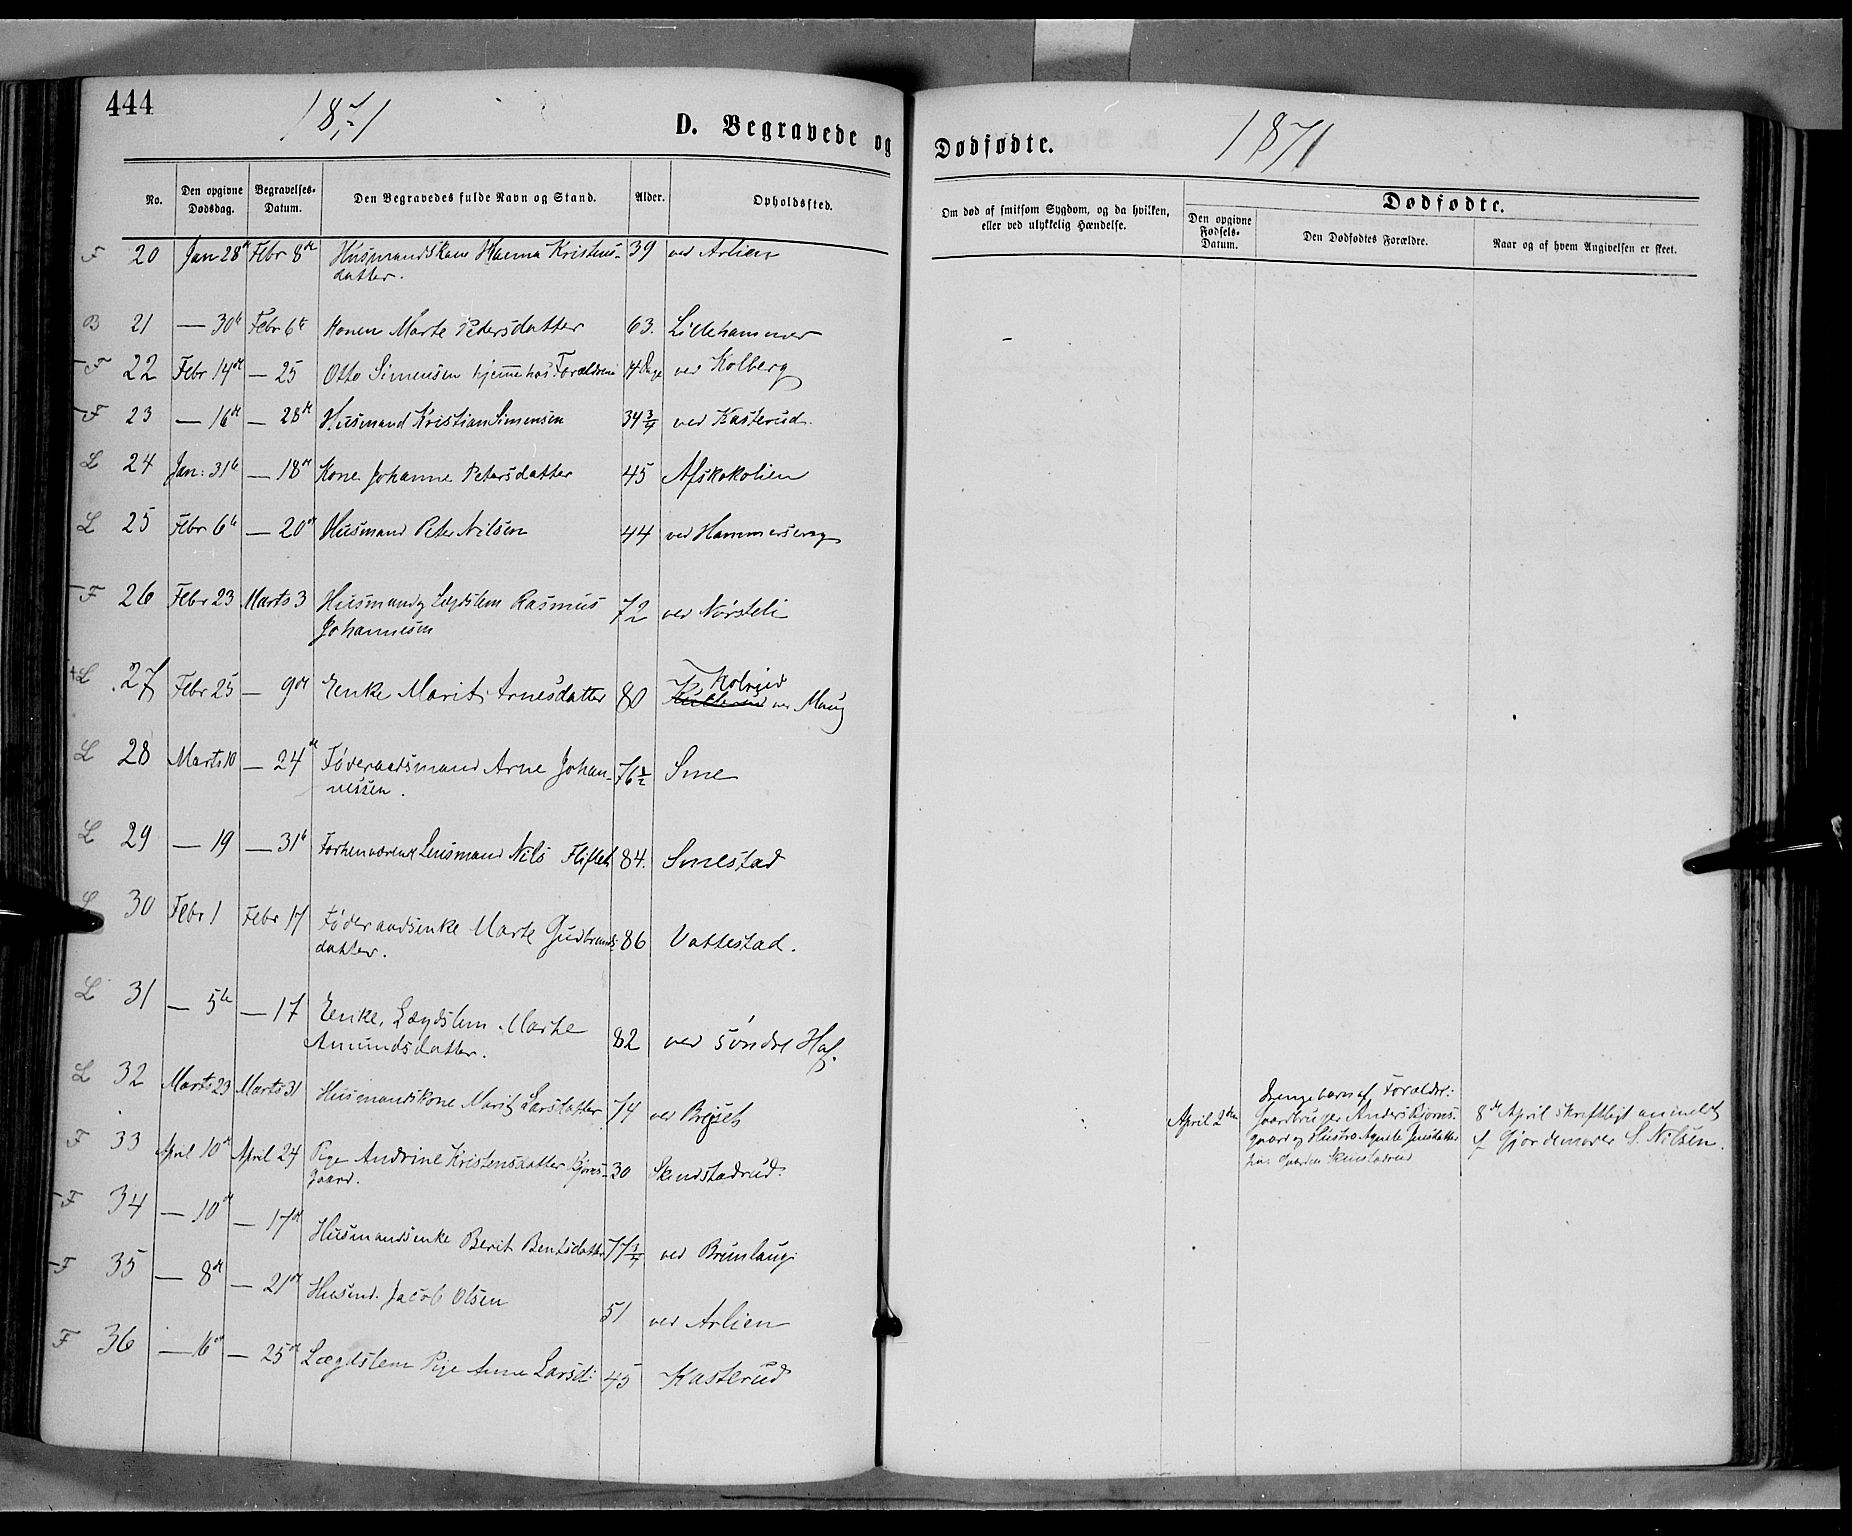 444
1871
D. Begravede og
No. Den opgivne Dødsdag. Begravelses-Datum. Den Begravedes fulde Navn og Stand. Alder. Opholdssted.
F 20 Jan 28de Febr 8de Husmandskone Hanna Kristens- 39 ved Arlien
datter.
B 21 — 30te Febr 6te Konen Marte Pedersdatter 63. Lillehammer
F 22 Febr 14de — 25 Otto Simensen hjemme hos Forældrene 14 Dage ved Kolberg
F 23 — 16de — 28de Husmand Kristian Simensen 34 3/4 ved Kasterud.
L 24 Jan: 31te — 18de Kone Johanne Petersdatter 45 Afskokolien
L 25 Febr 6te — 20de Husmand Peter Nilsen 44 ved Hammerseng
F 26 Febr 23 Marts 3 Husmand, Lægdslem Rasmus 72 ved Nørsteli
Johannesen
L 27 Febr 25 — 9de Enke Marit Arnesdatter 80 ved Maug
L 28 Marts 10 — 24de Føderaadsmand Arne Johan- 76 1/2 Sme
nessen.
L 29 — 19 — 31te Forhenværend Lensmand Nils Fliflet 84. Smestad
L 30 Febr 1 Febr 17 Føderaadsenke Marte Gudbrands- 86 Vattestad.
datter.
L 31 — 5te — 17 Enke, Lægdslem Marte 82 ved søndre Hof.
Amundsdatter.
L 32 Marts 23 Marts 31 Husmandskone Marit Larsdatter 74 ved Brøset
F 33 April 10de April 24 Pige Andrine Kristensdatter Bjørns- 30 Skindstadrud.
gaard.
F 34 — 10de — 17de Husmandsenke Berit Bentsdatter 77 1/4 ved Brunlaug.
F 35 — 8de — 21de Husmd. Jacob Olsen 51 ved Arlien
F 36 — 16de — 25de Lægdslem Pige Anne Larsd: 45 Kasterud
Dødfødte.
1871
Om død af smitsom Sygdom, og da hvilken, eller ved ulykkelig Hændelse.
Dødfødte.
Den opgivne Fødsels-Datum. Den Dødfødtes Forældre. Naar og af hvem Angivelsen er skeet.
April 2den
Drengebarn af Forældre:
Gaardbruger Anders Bjørns-
gaard og Hustru Agnete Jensdatter
Gaarden Skindstadrud
8de April skriftligt anmeldt
af Gjordemoder S. Nilsen.